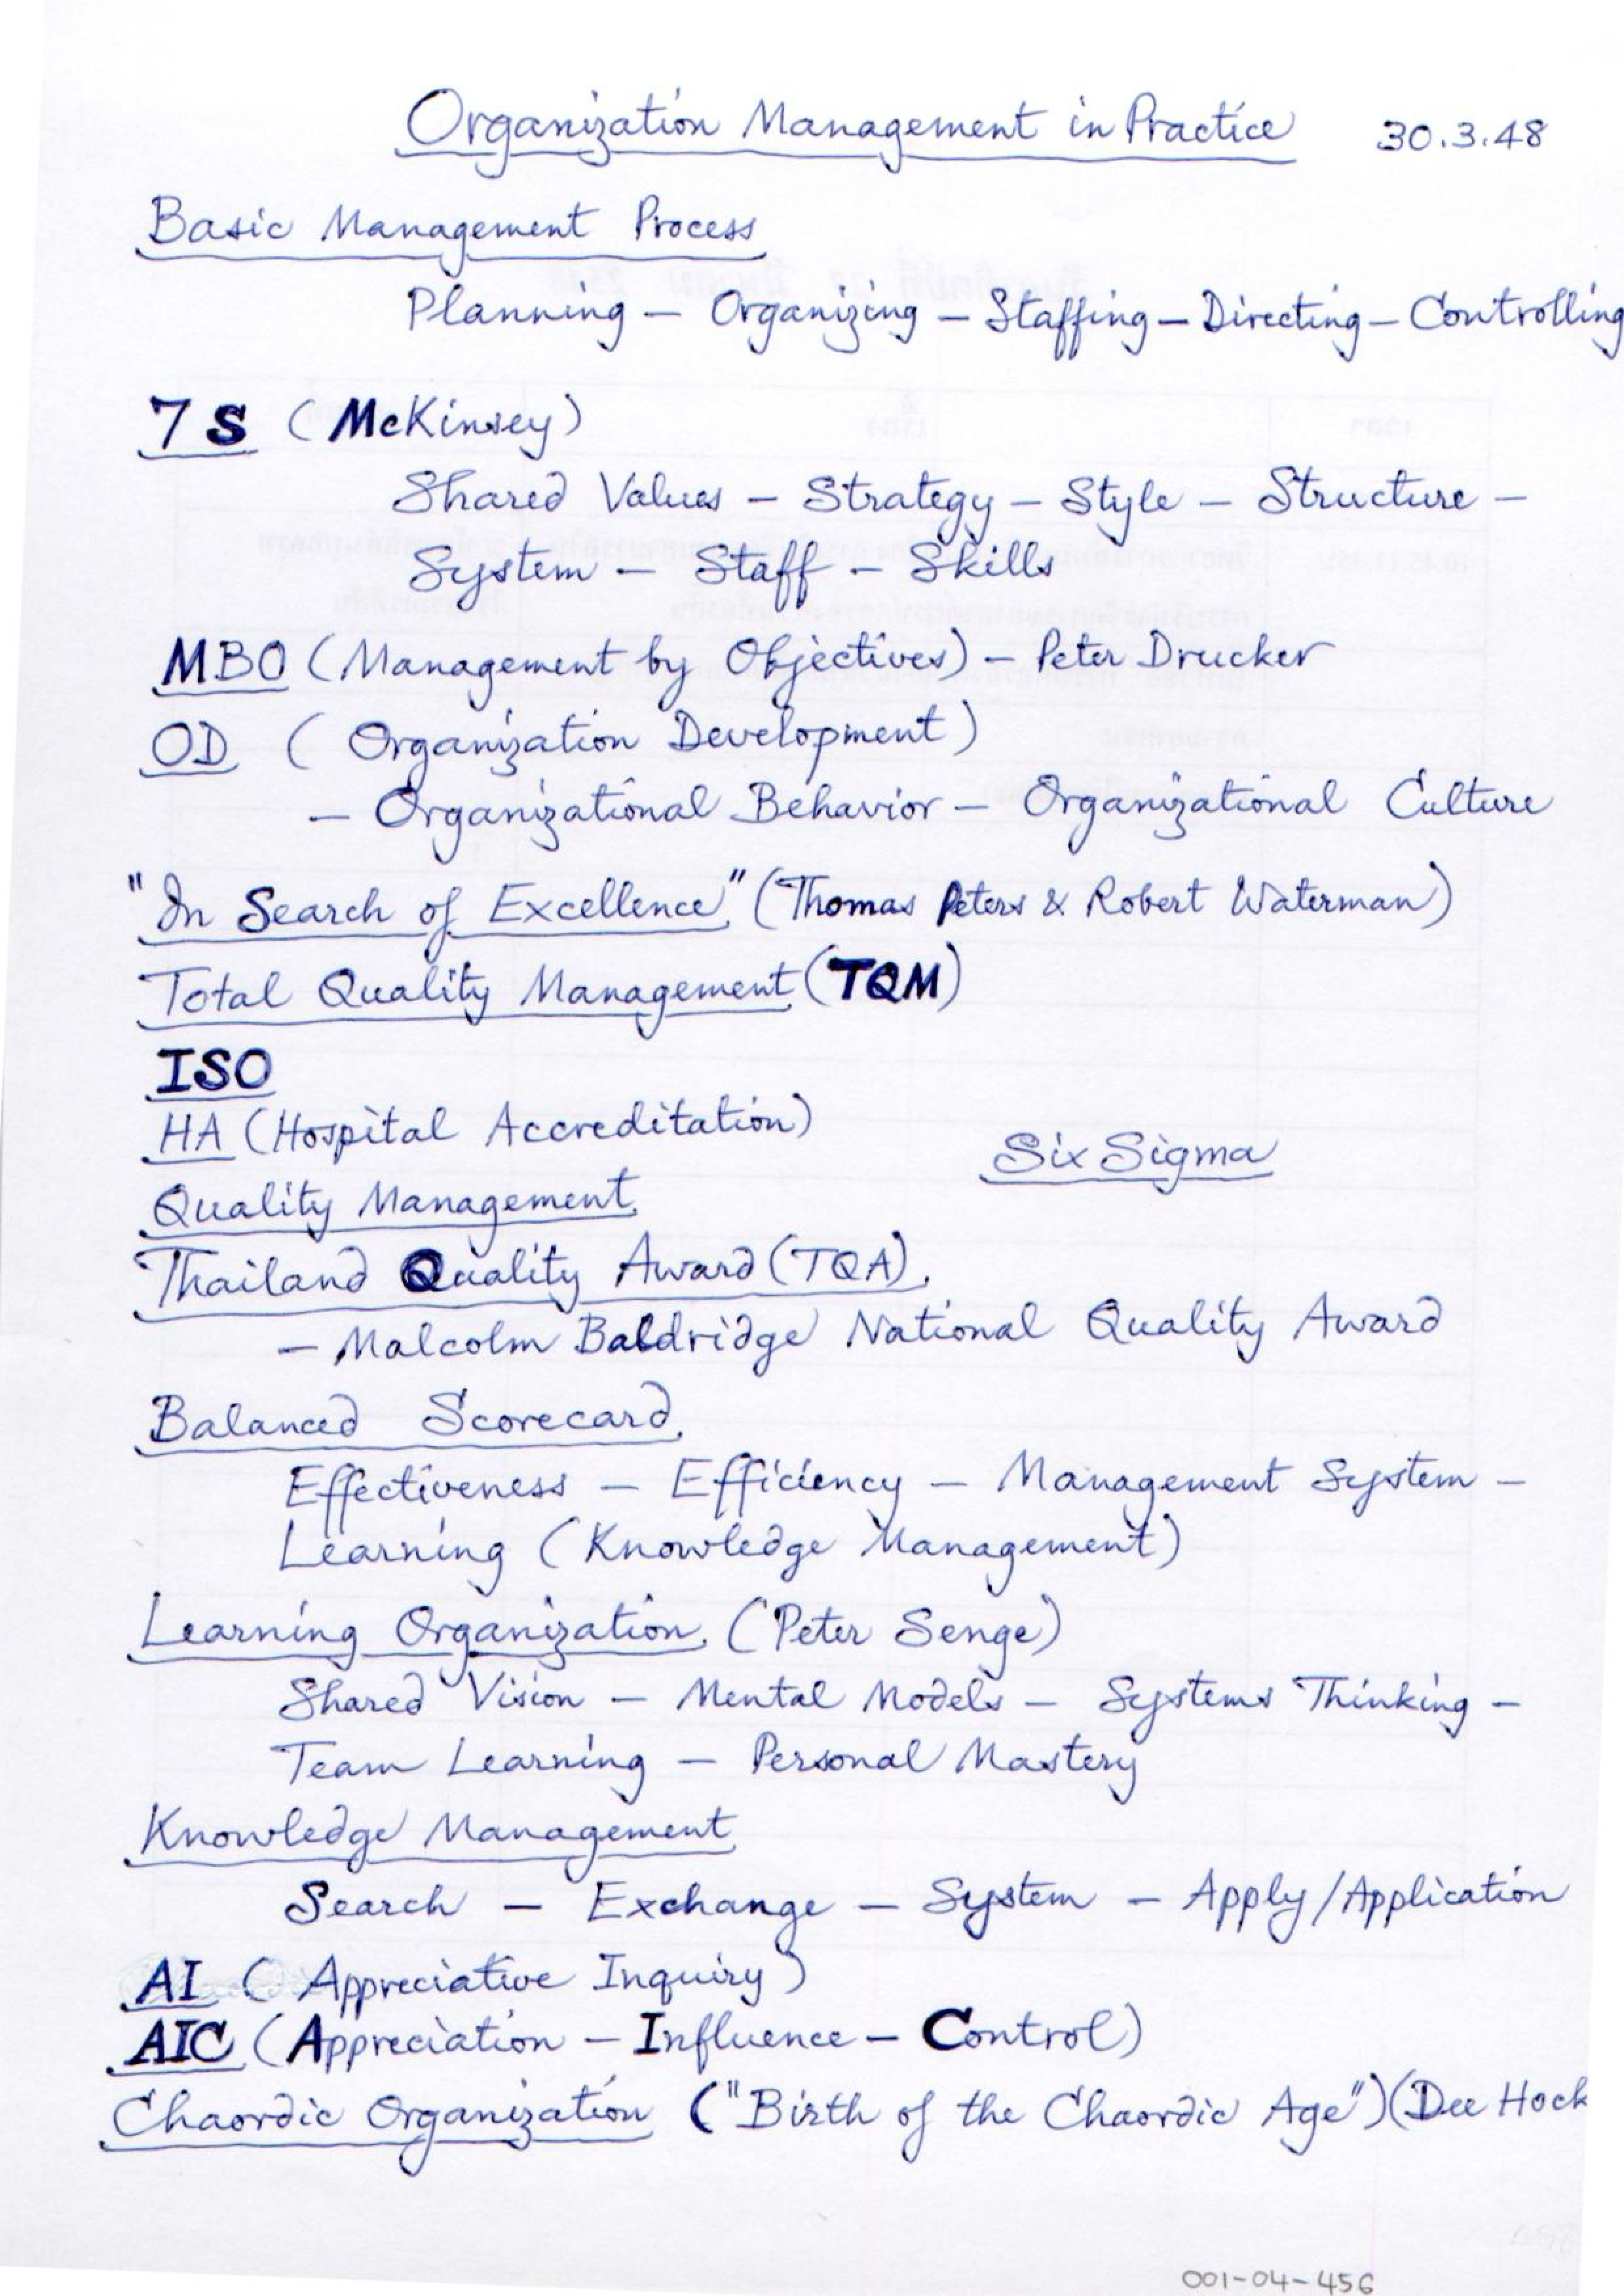 Organization Management in Practice 30.3.48
Basic Management Process
Planning – Organizing – Staffing – Directing – Controlling
7S (McKinsey)
Shared Values – Strategy – Style – Structure –
System – Staff – Skills
MBO (Management by Objectives) – Peter Drucker
OD (Organization Development)
– Organizational Behavior – Organizational Culture
"In Search of Excellence" (Thomas Peters & Robert Waterman)
Total Quality Management (TQM)
ISO
HA (Hospital Accreditation)
Six Sigma
Quality Management
Thailand Quality Award (TQA)
– Malcolm Baldridge National Quality Award
Balanced Scorecard
Effectiveness – Efficiency – Management System –
Learning (Knowledge Management)
Learning Organization (Peter Senge)
Shared Vision – Mental Models – Systems Thinking –
Team Learning – Personal Mastery
Knowledge Management
Search – Exchange – System – Apply/Application
AI (Appreciative Inquiry)
AIC (Appreciation – Influence – Control)
Chaordic Organization ("Birth of the Chaordic Age") (Dee Hock
001-04-456